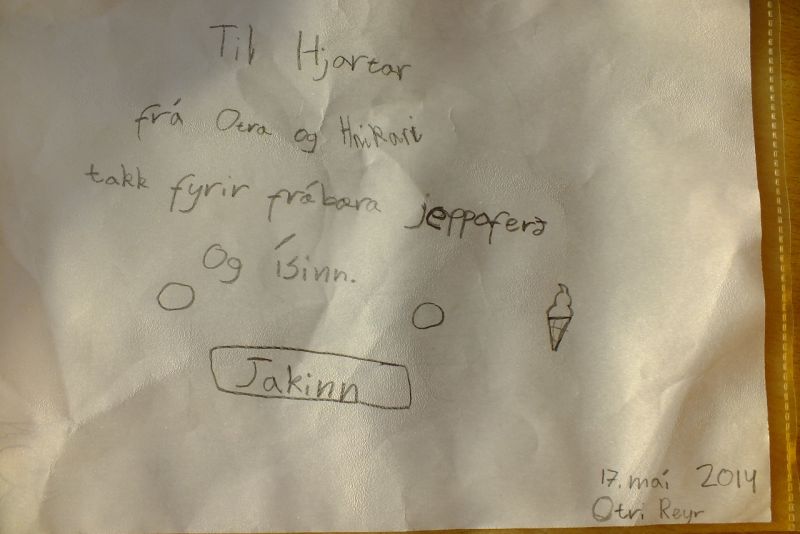 Til Hjartar
frá Otra og Hnikari
takk fyrir frábæra jeppaferð
Og Ísinn.
Jakinn
17. maí 2014
Otri Reyr